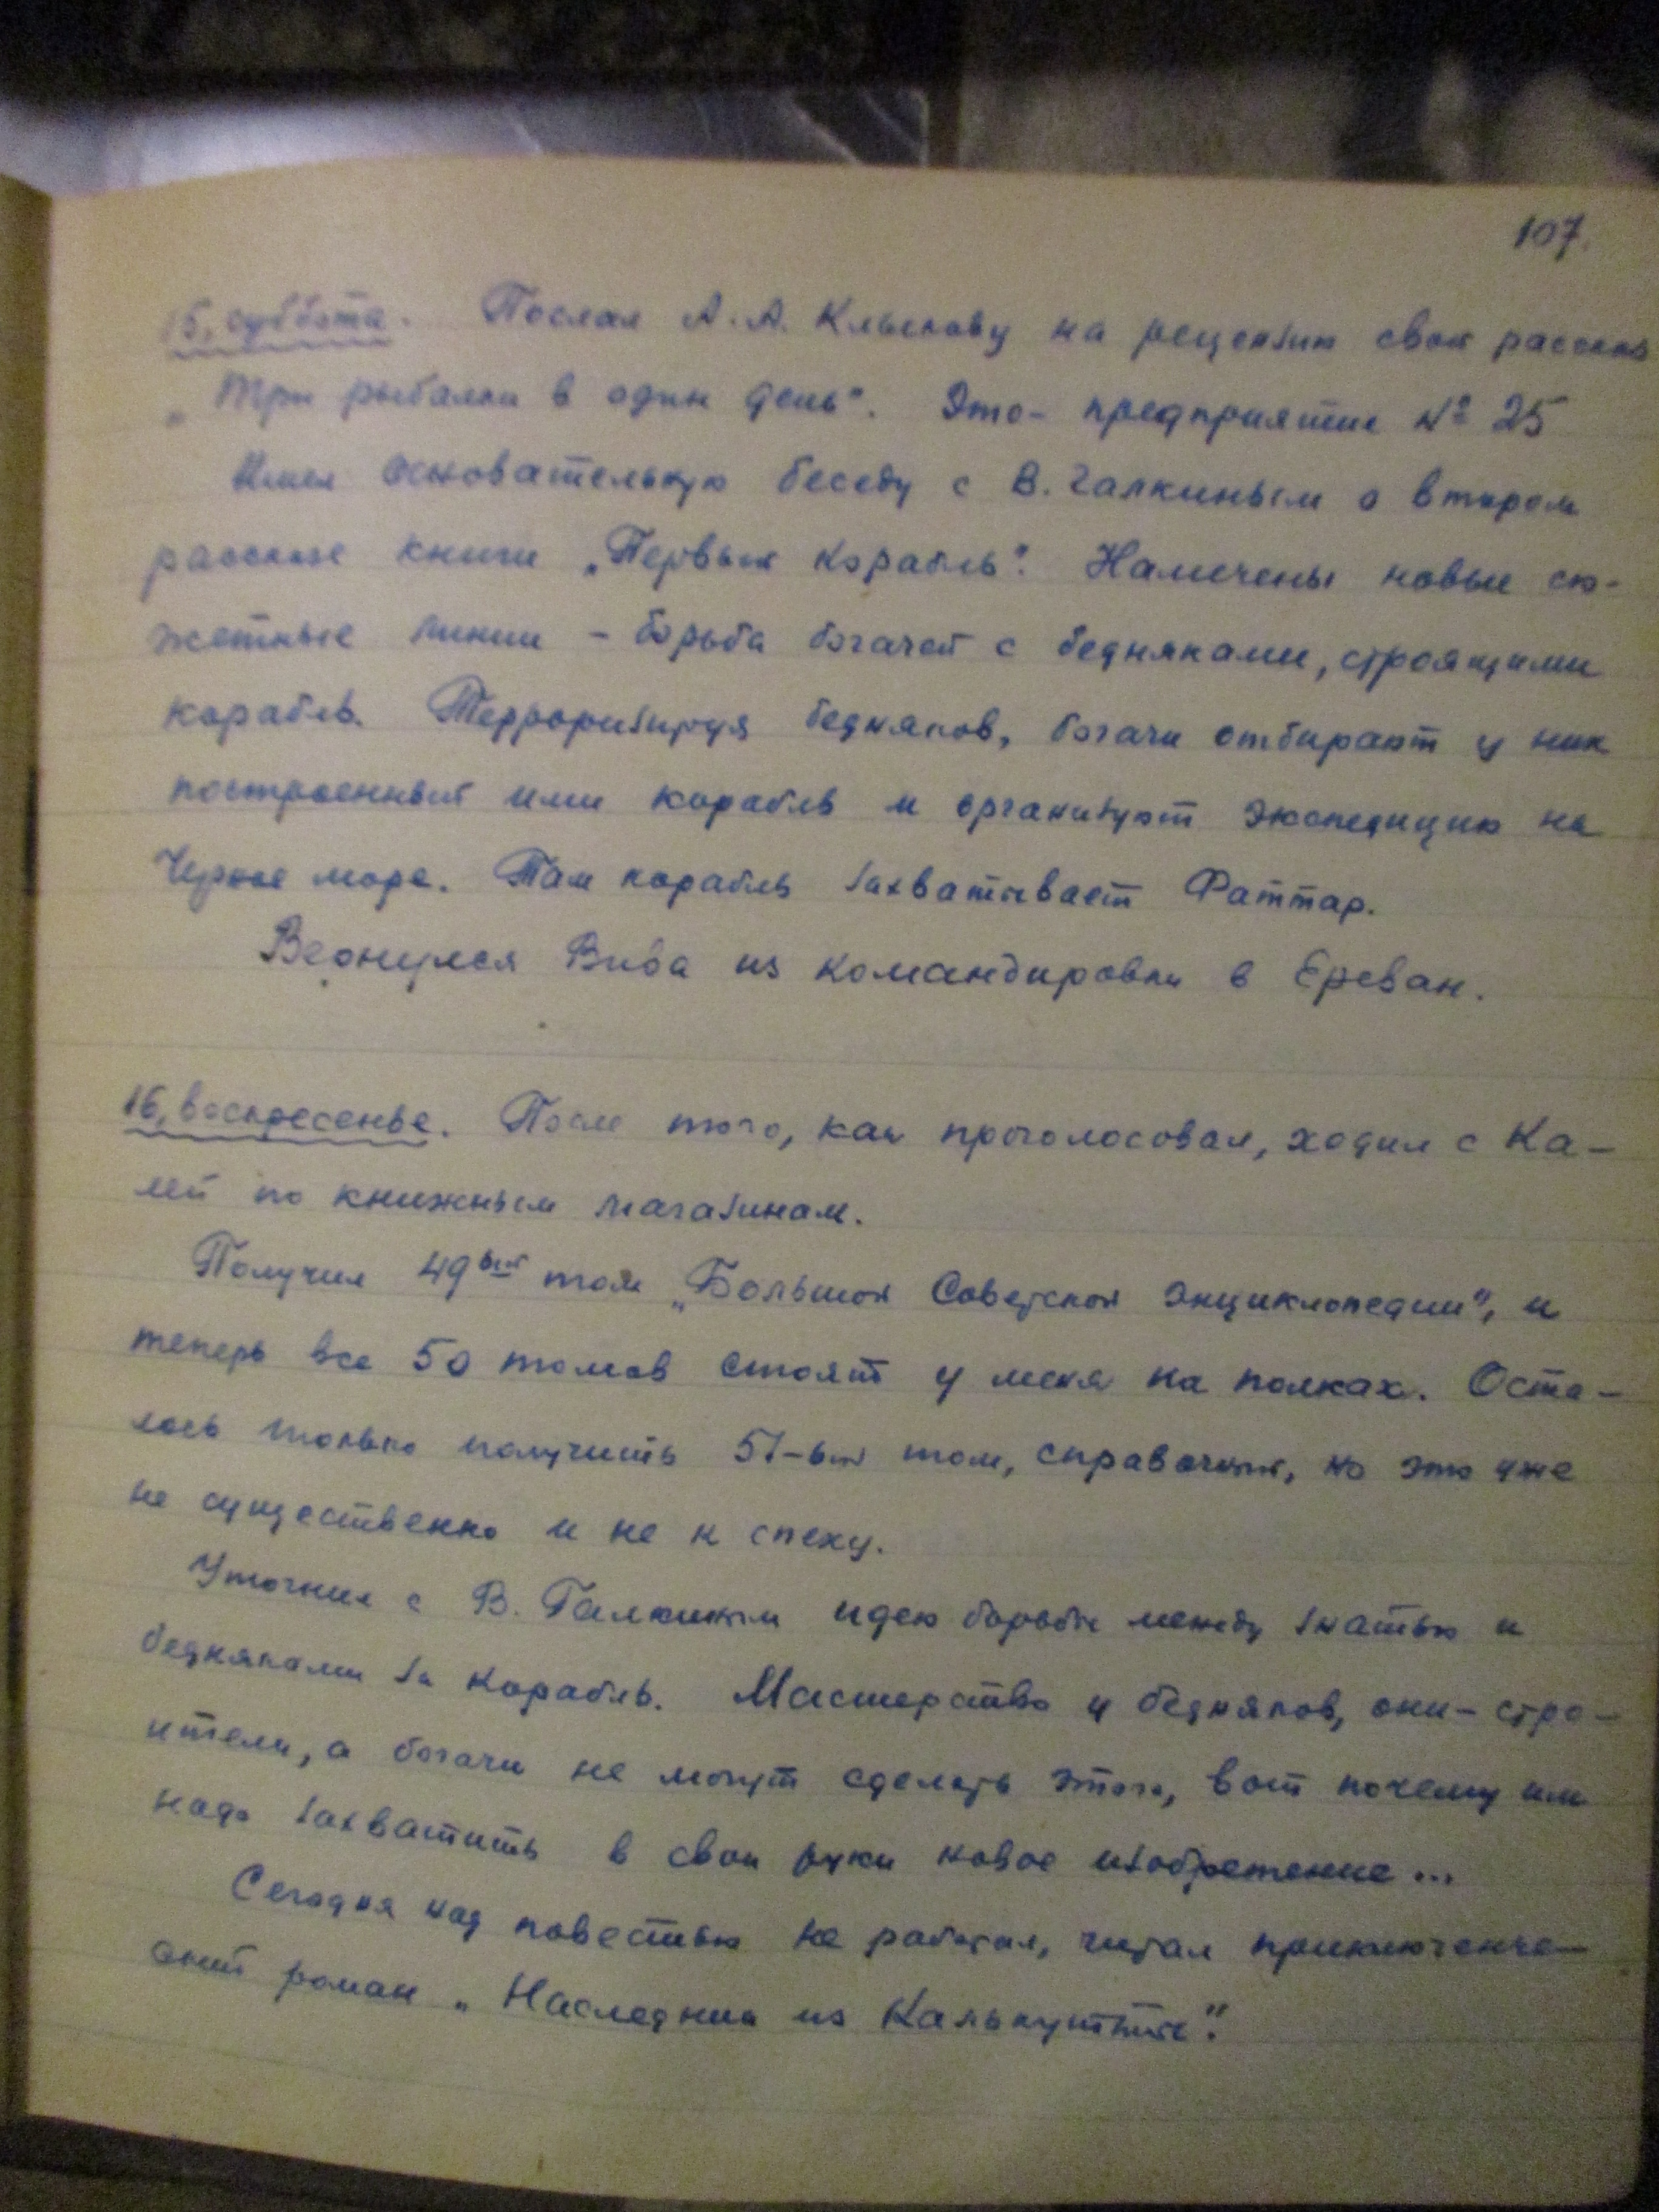 107.
15, суббота. Послал А.А. Клыкову на рецензию свой рассказ
„Три рыбалки в один день". Это - предприятие № 25
Имел основательную беседу с В. Галкиным о втором
рассказе книги „Первый корабль". Намечены новые сю-
жетные линии - борьба богачей с бедняками, строящими
корабль. Терроризируя бедняков, богачи отбирают у них
построенный ими корабль и организуют экспедицию на
Черное море. Там корабль захватывает Фаттар.
Вернулся из командировки в Ереван.
16, воскресенье. После того, как проголосовал, ходил с Ка-
лей по книжным магазинам.
Получил 49ый том „Большой Советской энциклопедии", и
теперь все 50 томов стоят у меня на полках. Оста-
лось только получить 51-ый том, справочный, но это уже
не существенно и не к спеху.
Уточнил с В. Галкиным идею борьбы между знатью и
бедняками за корабль. Мастерство у бедняков, они - стро-
ители, а богачи не могут сделать этого, вот почему им
надо захватить в свои руки новое изобретение...
Сегодня над повестью не работал, читал приключенче-
ский роман „Наследник из Калькутты".